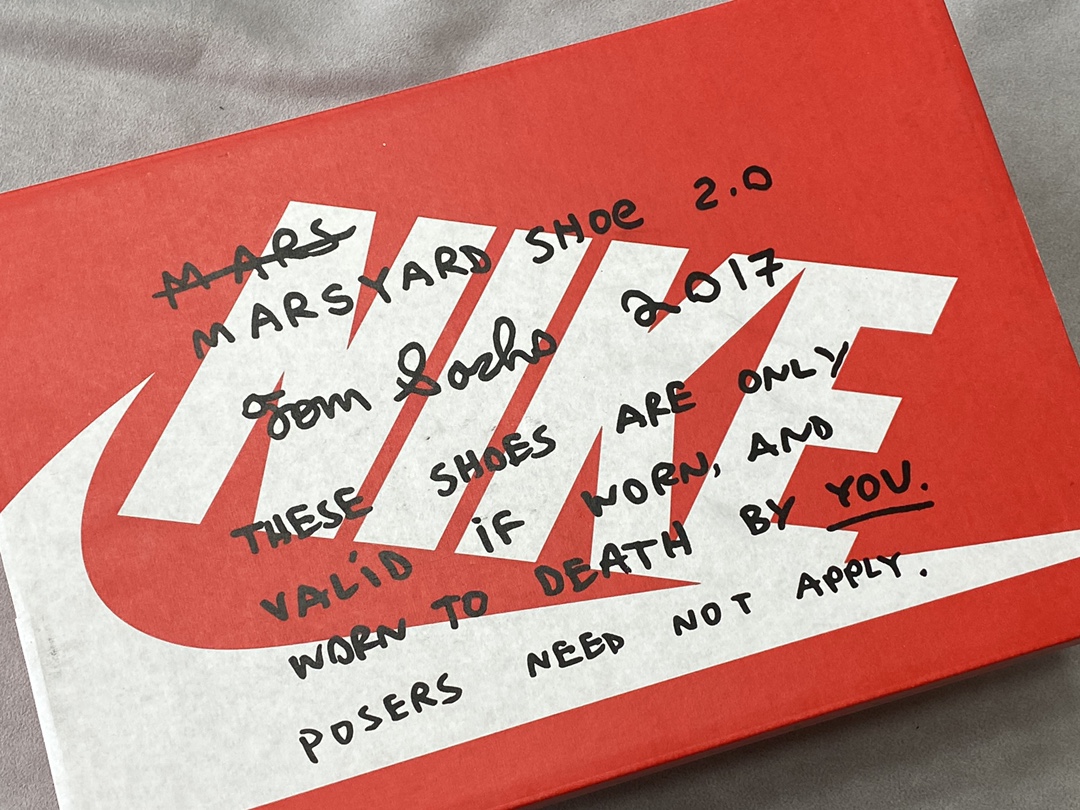 MARS
MARSYARD SHOE 2.0
Tom Sachs 2017
THESE SHOES ARE ONLY
VALID IF WORN, AND
WORN TO DEATH BY YOU.
POSERS NEED NOT APPLY.
NIKE